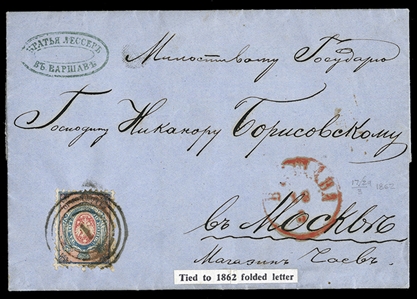 БРАТЬЯ ЛЕССЕРЪ
ВЪ ВАРШАВѢ
Милостивому Государю
Господину Никанору Борисовскому
17/29 1862
въ Москвѣ
Магазинъ Чаевъ
Tied to 1862 folded letter